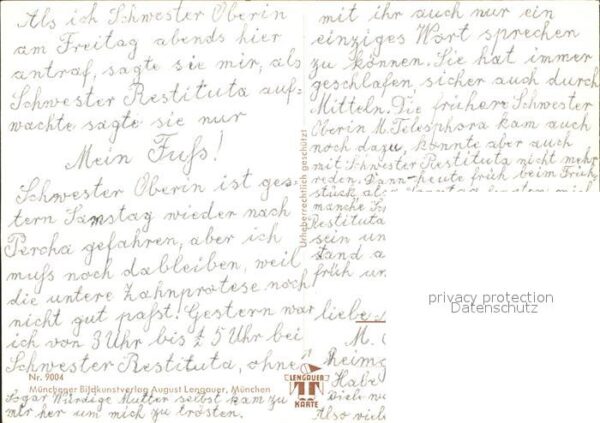 Als ich Schwester Oberin
am Freitag abends hier
antraf, sagte sie mir, als
Schwester Restituta auf-
wachte sagte sie nur
Mein Fuß!
Schwester Oberin ist ges-
tern Samstag wieder nach
Percha gefahren, aber ich
muß noch dableiben, weil
die untere Zahnprotese noch
nicht gut paßt. Gestern war
ich von 3 Uhr bis ½ 5 Uhr bei
Schwester Restituta, ohne
Nr. 9004
Münchener Bildkunstverlag August Lengauer, München
Sogar Würdige Mutter selbst kam zu
mir her um mich zu trösten.
Urheberrechtlich geschützt
LENGAUER
KARTE
mit ihr auch nur ein
einziges Wort sprechen
zu können. Sie hat immer
geschlafen, sicher auch durch
Mitteln. Die frühere Schwester
Oberin M. Telesphora kam auch
noch dazu, konnte aber auch
mit Schwester Restituta nicht mehr
reden. Dann heute früh beim Früh-
stück
manche
Restituta
sein un
stand a
früh un
liebe
M. C
heim
Habe
viele
Also viele
privacy protection
Datenschutz